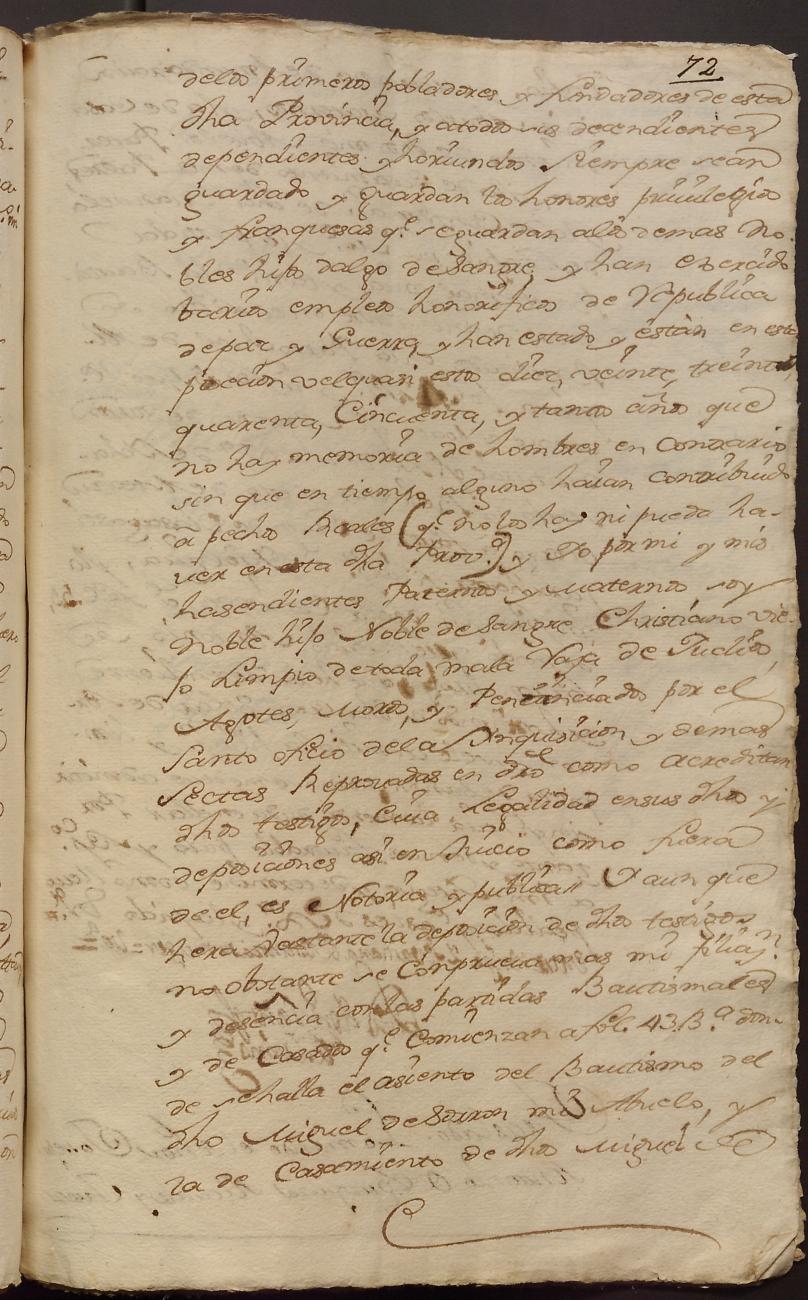 72
delos primeros pobladores y fundadores de esta
dha Provincia, y atodos sus decendientes
dependientes y horiundos siempre sean
guardado y guardan los honores privilegios
y franquesas q.e se guardan alos demas No-
bles hijos dalgo de Sangre, y han exercido
barios empleos honorificos de Republica
depaz y Guerra, y han estado y están en esta
posecion velquasi estos diez, veinte, treinta,
quarenta, Cincuenta, y tantos años que
no hay memoria de hombres en contrario
sin que en tiempo alguno haian contribuido
a pechos Reales (q.e no los hay ni puede ha-
ver en esta dha Prov.a) y Yo por mi y mis
hasendientes Paternos y maternos soy
noble hijo Noble de Sangre Christiano vie-
jo Limpio de toda mala Raza de Judios,
Agotes, Moros, y Penitenciados por el
Santo oficio dela Inquisicion y demas
Sectas Reprovadas en dro como acreditan
dhos testigos, Cuia Legalidad en sus dhos y
deposiciones asi en Juicio como fuera
de el, es Notoria y publica Y aun que
hera Bastante la deposicion de dhos testigos
no obstante se comprueva mas mi filiaz.n
y desencia con las partidas Bautismales
y de Casados q.e Comienzan a fol. 43.B.a don-
de se halla el asiento del Bautismo del
dho Miguel de Sorron mi Abuelo, y
la de Casamiento de dho Miguel